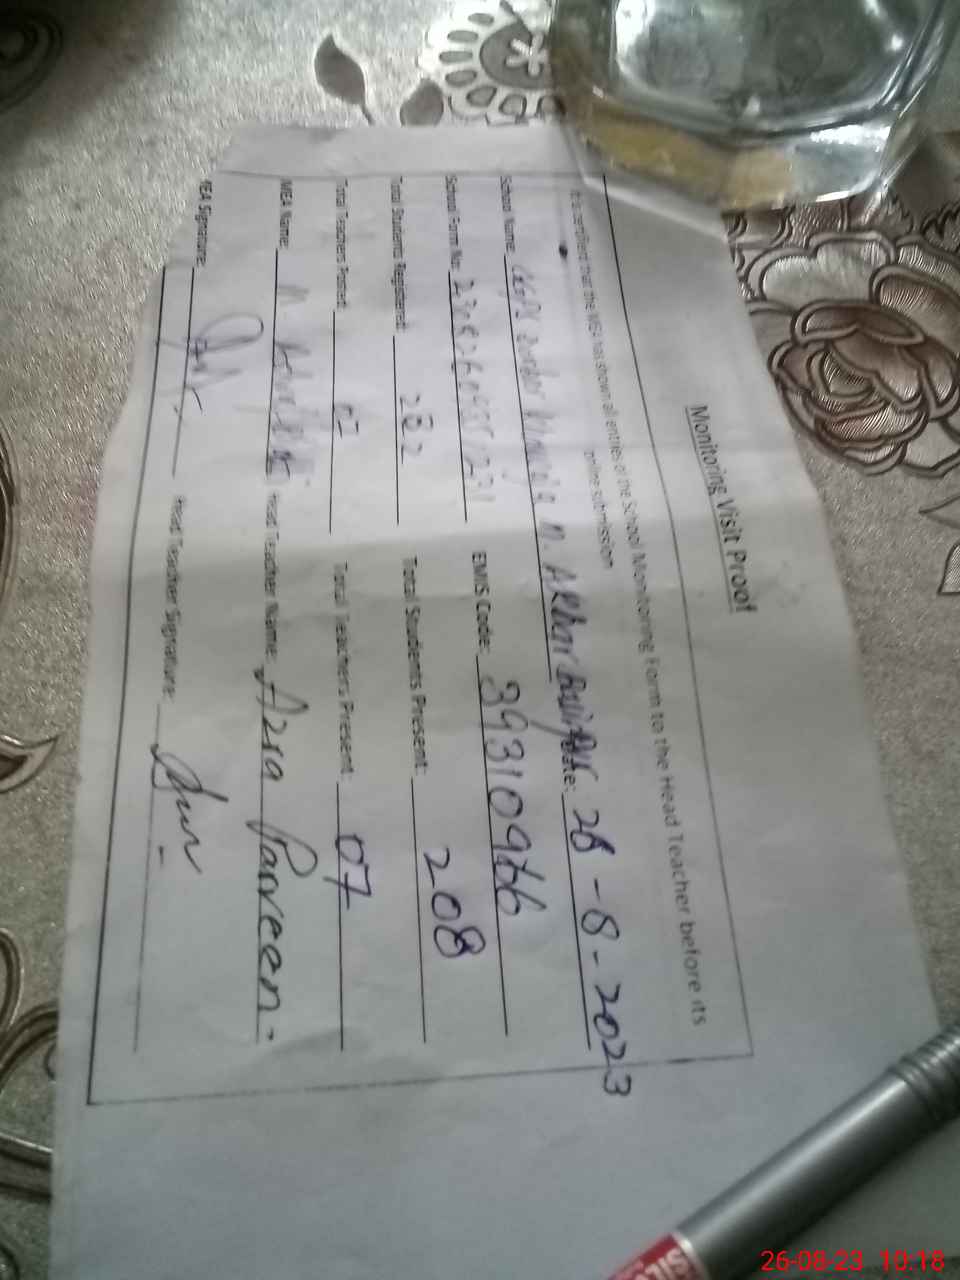 Monitoring Visit Proof
It is certified that the MEA has shown all entries of the School Monitoring Form to the Head Teacher before its
online submission
School Name: n. Akbar Date: 28-8-2023
School Form No: EMIS Code: 39310966
Total Students Registered: 282 Total Students Present: 208
Total Teachers Posted: 07 Total Teachers Present: 07
MEA Name: M. Head Teacher Name: Azra Parveen.
MEA Signature: Head Teacher Signature:
26-08-23 10:18